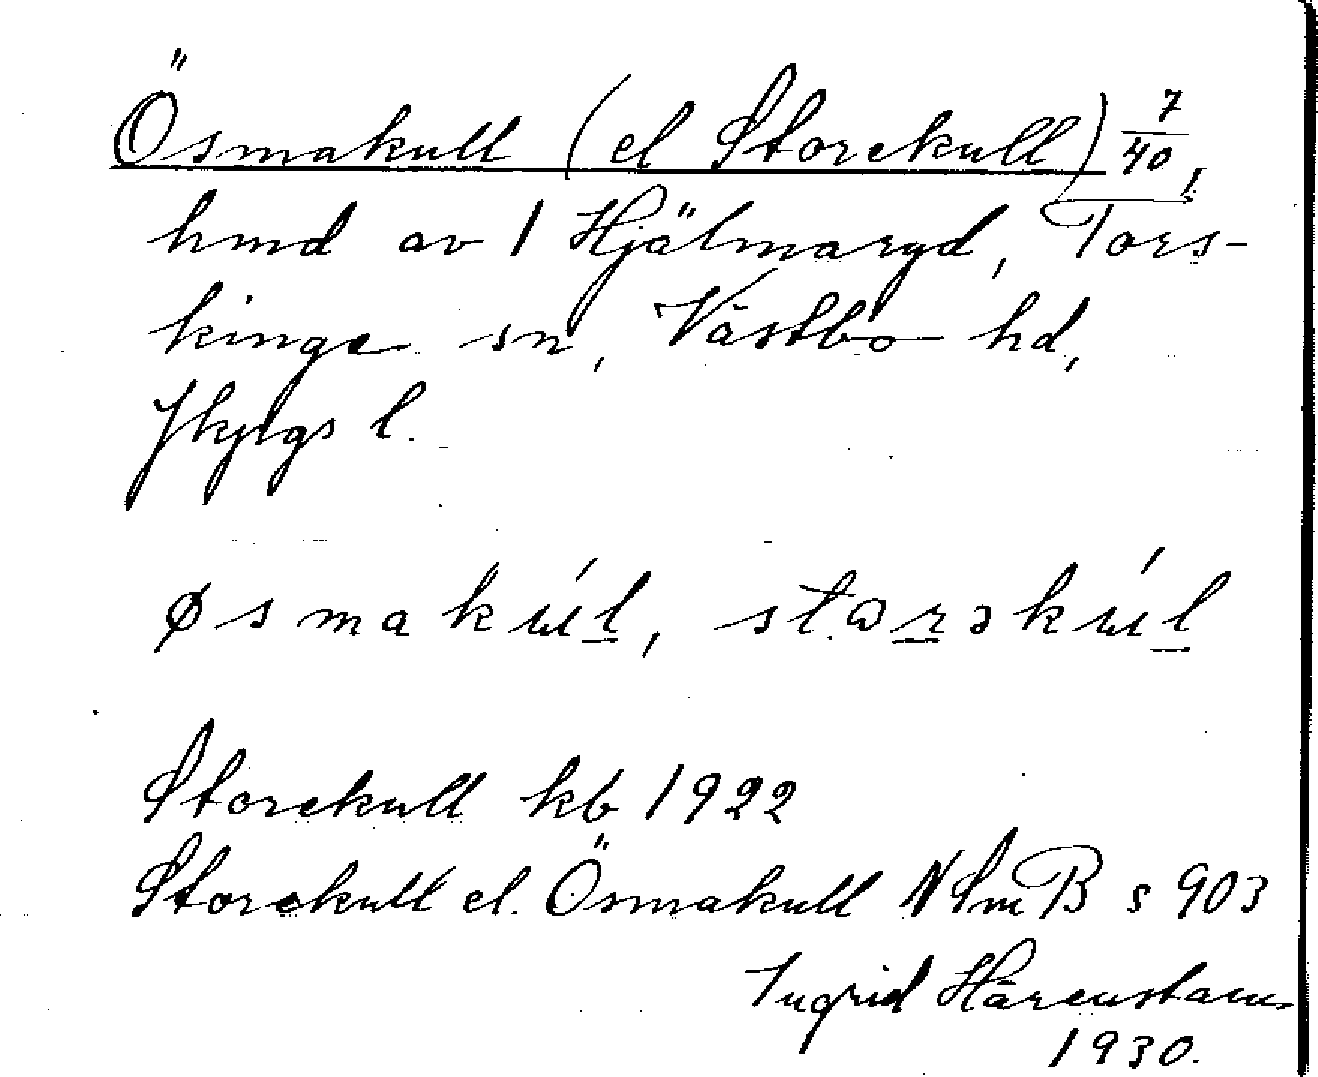 Ösmakull (el Storekull) 7/40,
hmd av 1 Hjälmaryd, Tors-
kinge sn, Västbo hd,
Jkpgs l.
øsmakúl, stɷrəkúl
Storekull kb 1922
Storekull el. Ösmakull NSmB s 903
Ingrid Härenstam
1930.